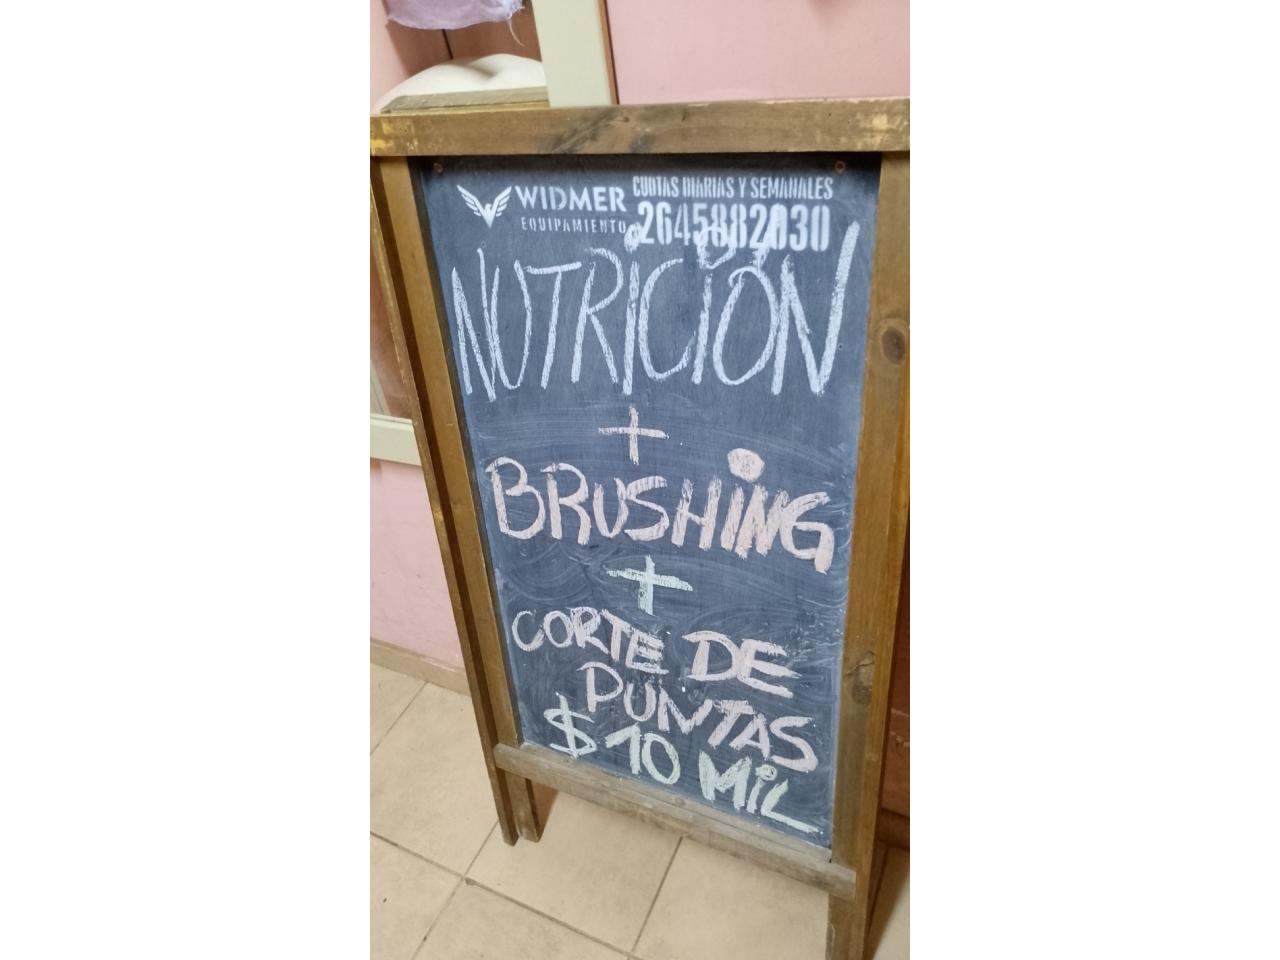 WIDMER
EQUIPAMIENTO
CUOTAS DIARIAS Y SEMANALES
2645882030
NUTRICIÓN
+
BRUSHING
+
CORTE DE
PUNTAS
$10 MIL